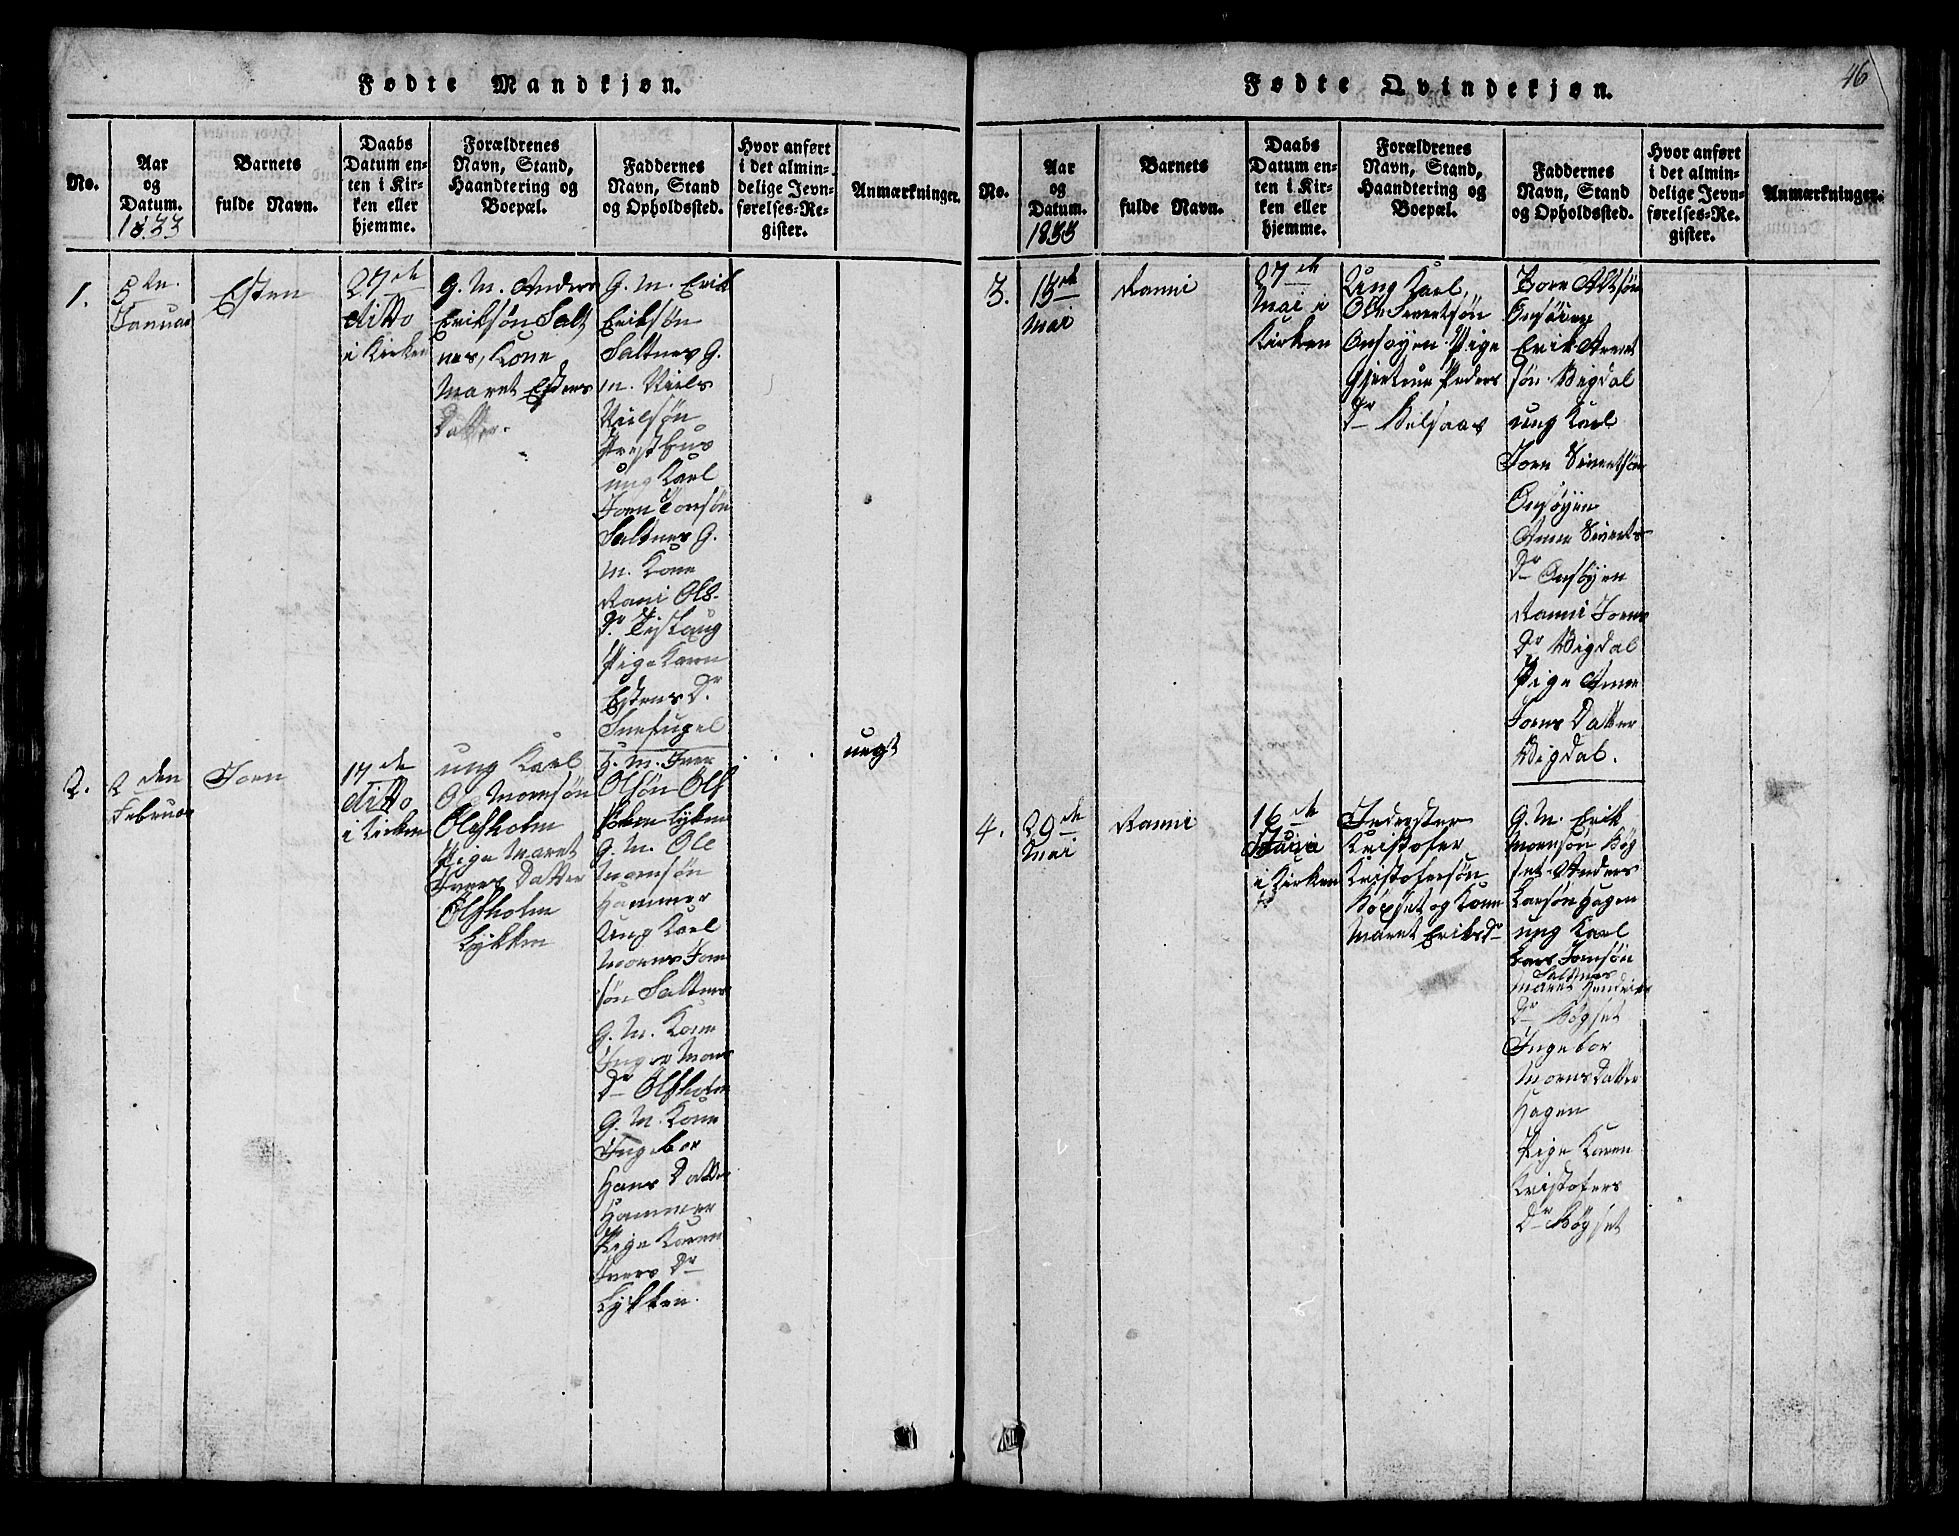 Fødte Mandkjøn.
No.
Aar
og
Datum.
1833
Barnets
fulde Navn.
Daabs
Datum en-
ten i Kir-
ken eller
hjemme.
Forældrenes
Navn, Stand,
Haandtering og
Boepæl.
Faddernes
Navn, Stand
og Opholdssted.
Hvor anført
i det almin-
delige Jevn-
førelses-Re-
gister.
Anmærkninger.
1.
5
Januar
Esten
27de
ditto
i Kirken
G. M. Anders
Eriksøn Salt
nes, Kone
Maret Estens
Datter.
G. M. Erik
Eriksøn
Saltnes G.
M. Niels
Nielsøn
Presthus
ung Karl
Jorn Jonsøn
Saltnes G.
M. Kone
Rani Ols-
Dr.
Pige Karen
Estens Dr.
Snefugel
2.
2den
Februar
Joen
17de
ditto
i Kirken
ung Karl
Ol Monsøn
Olsholm
Pige Maret
Ivers Datter
Olsholm
Lykken
G. M. Iver
Olsøn Ols
Lykken
G. M. Ole
Monsøn
Hammer
Ung Karl
Mons Jon
søn Saltnes
G. M. Kone
Inger Mons
Dr Olsholm
G. M. Kone
Ingebor
Hans Datter
Hammer
Pige Karen
Ivers Dr
Lykken.
uegt
Fødte Qvindekjøn.
46
No.
Aar
og
Datum.
1833
Barnets
fulde Navn.
Daabs
Datum en-
ten i Kir-
ken eller
hjemme.
Forældrenes
Navn, Stand,
Haandtering og
Boepæl.
Faddernes
Navn, Stand
og Opholdssted.
Hvor anført
i det almin-
delige Jevn-
førelses-Re-
gister.
Anmærkninger.
3.
15de
Mai
Ranni
27de
Mai i
Kirken
Ung Karl,
Ole Sivertsøn
Onsøyen Pige
Gjertrue Peders
Dr Kelsaas
Jorn
Onsøien
Erik Arnt
søn Vigdal
ung Karl
Jorn Sivertsøn
Onsøyen
Anne Siverts-
Dr Onsøyen
Ranni Jorns
Dr Vigdal
Pige Anne
Jorns Datter
Vigdal.
4.
29de
Mai
Ranni
16de
Juni
i Kirken
Inderster
Kristofer
Kristofersøn
Bøgset og Kone
Maret Eriks Dr
G. M. Erik
Monsøn Bøg
set Anders
Larsøn Hagen
ung Karl
Lars Jonsøn
Saltnes
Maret Hendriks
Dr Bøgset
Ingebor
Mons Datter
Hagen
Pige Karen
Kristofers
Dr Bøgset